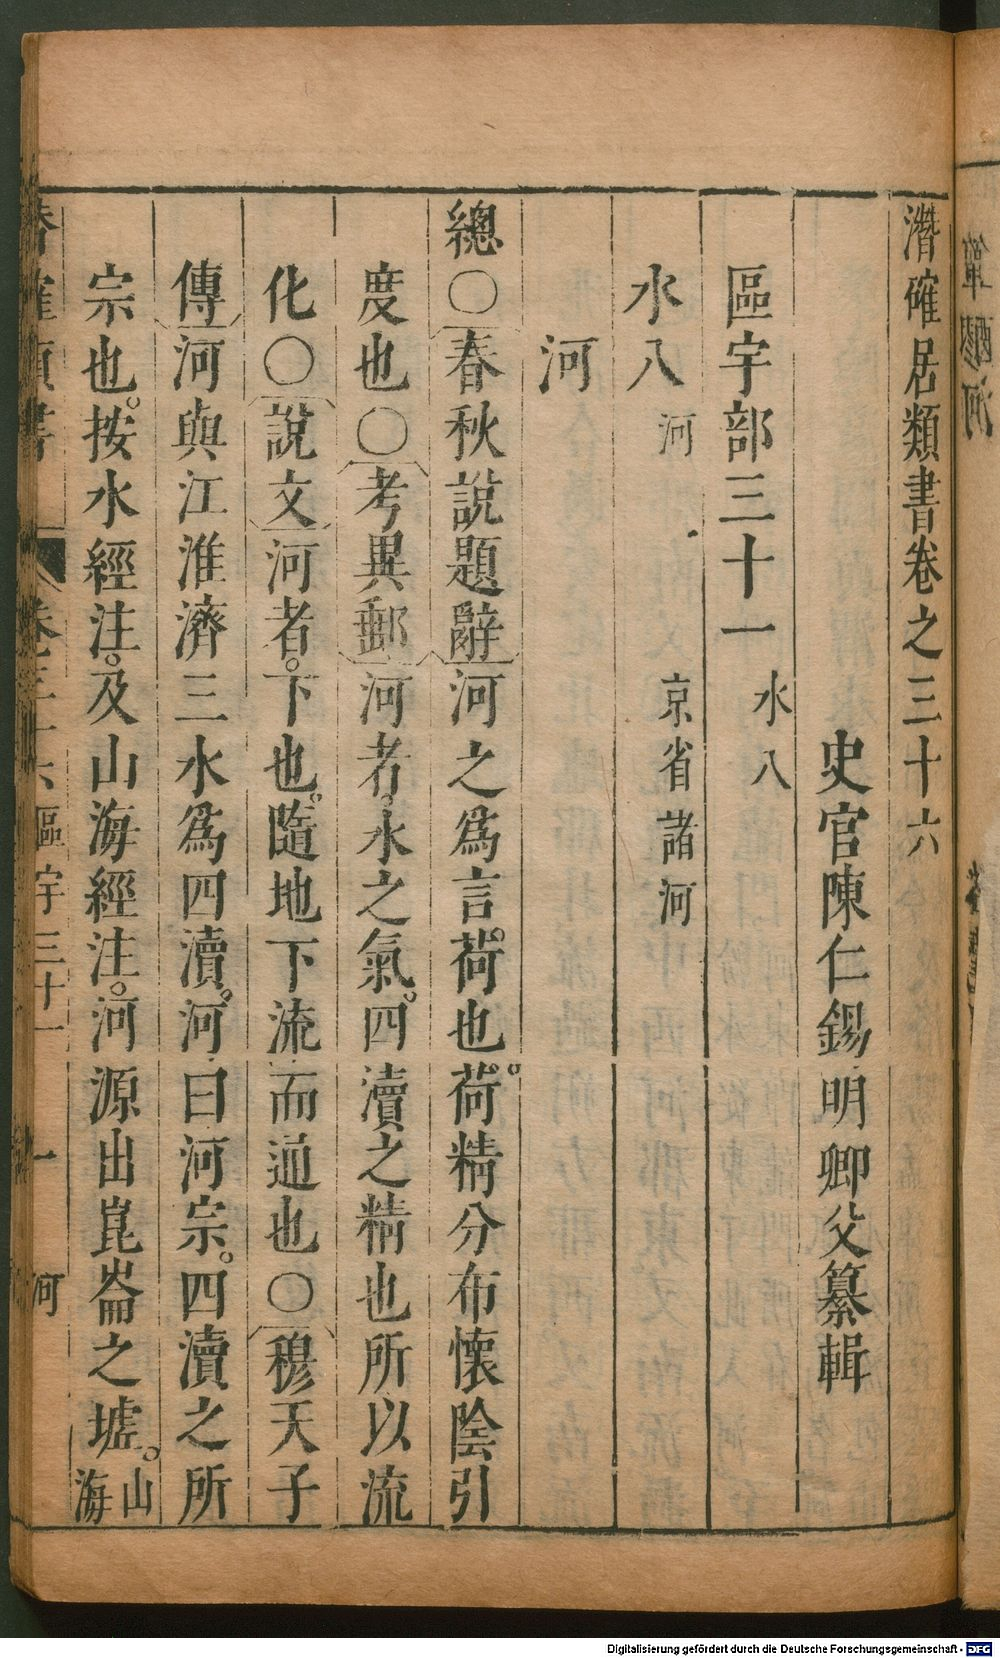 潛確居類書卷之三十六
史官陳仁錫明卿父纂輯
區宇部三十一 水八
水八 河 京省諸河
河
總〇春秋說題辭河之爲言荷也荷精分布懷陰引
度也〇考異郵河者水之氣四瀆之精也所以流
化〇說文河者下也隨地下流而通也〇穆天子
傳河與江淮濟三水爲四瀆河曰河宗四瀆之所
宗也按水經注及山海經注河源出崑崙之墟山
海
確 書 卷三十六區宇三十一 一 河
Digitalisierung gefördert durch die Deutsche Forschungsgemeinschaft - DFG